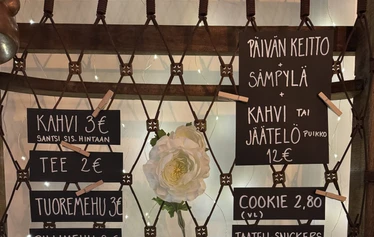 KAHVI 3€
SANTSI SIS. HINTAAN
TEE 2€
TUOREMEHU 3€
PÄIVÄN KEITTO
+
SÄMPYLÄ
+
KAHVI TAI
JÄÄTELÖ PUIKKO
12€
COOKIE 2,80
(VL)
SNICKERS